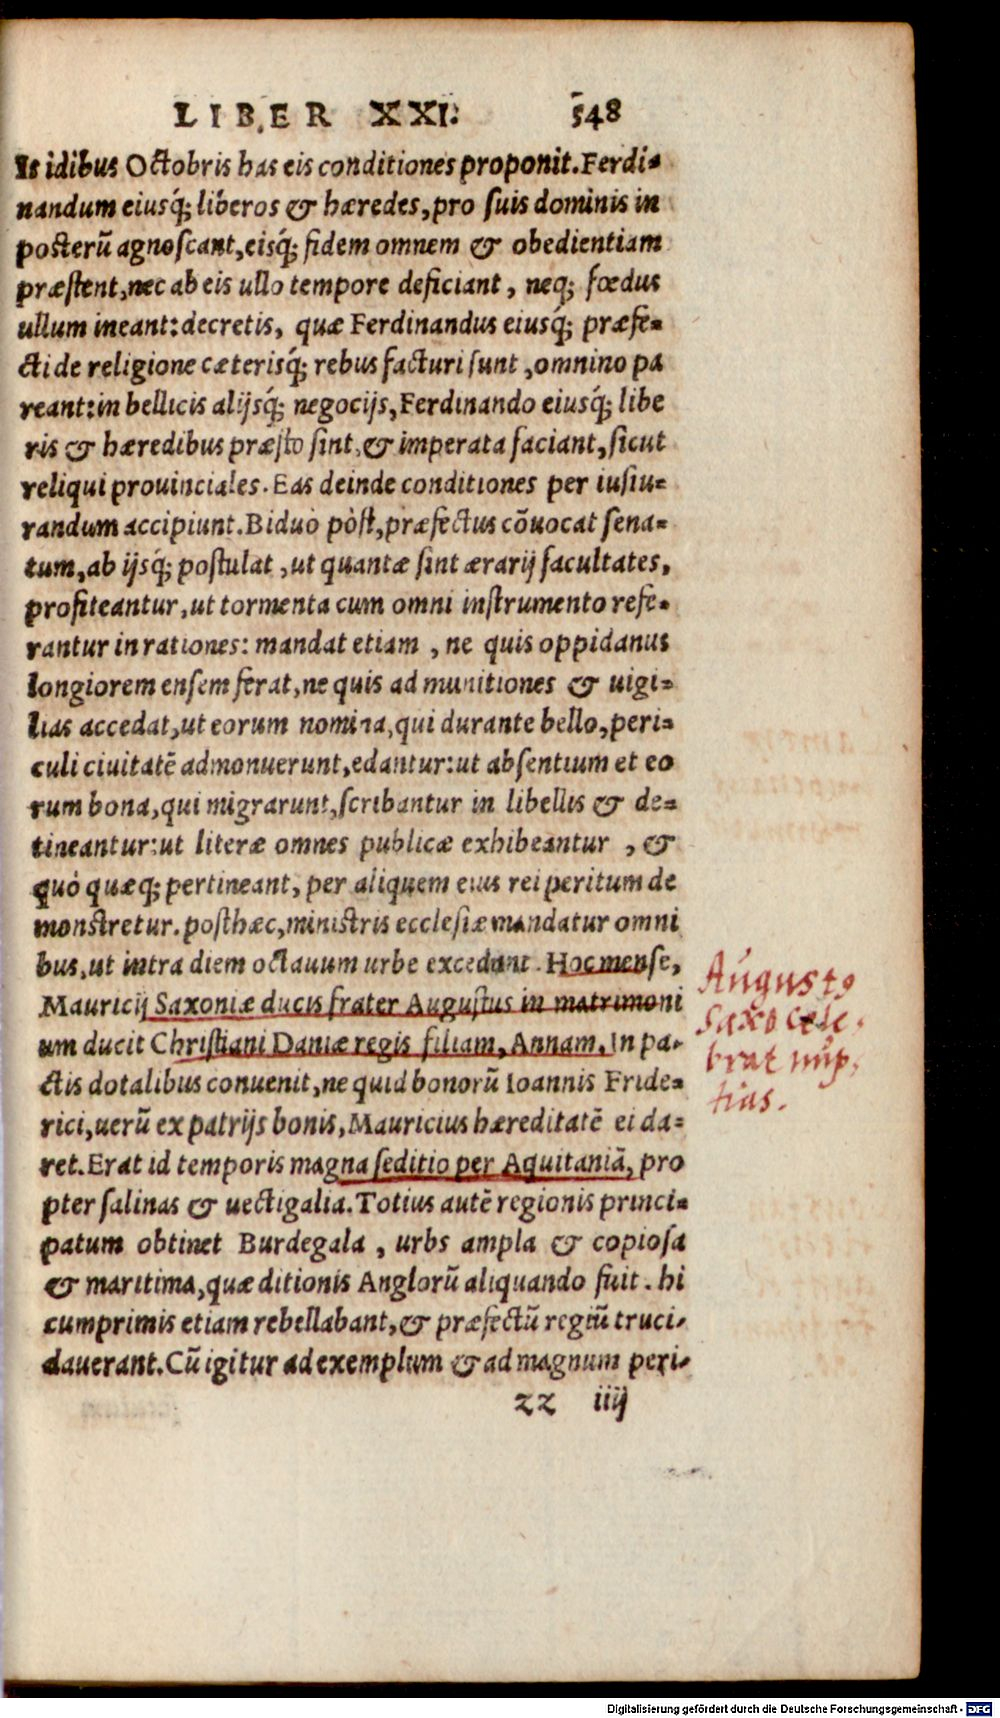 LIBER XXI. 548
Is idibus Octobris has eis conditiones proponit. Ferdi-
nandum eiusq́; liberos & hæredes, pro suis dominis in
posterũ agnoscant, eisq́; fidem omnem & obedientiam
præstent, nec ab eis ullo tempore deficiant, neq; fœdus
ullum ineant: decretis, quæ Ferdinandus eiusq́; præfe-
cti de religione cæterisq́; rebus facturi sunt, omnino pa
reant: in bellicis alijsq́; negocijs, Ferdinando eiusq́; libe
ris & hæredibus præsto sint, & imperata faciant, sicut
reliqui prouinciales. Eas deinde conditiones per iusiu-
randum accipiunt. Biduò pòst, præfectus cõuocat sena-
tum, ab ijsq́; postulat, ut quantæ sint ærarij facultates,
profiteantur, ut tormenta cum omni instrumento refe-
rantur in rationes: mandat etiam, ne quis oppidanus
longiorem ensem ferat, ne quis ad munitiones & uigi-
lias accedat, ut eorum nomina, qui durante bello, peri-
culi ciuitatẽ admonuerunt, edantur: ut absentium et eo
rum bona, qui migrarunt, scribantur in libellis & de-
tineantur: ut literæ omnes publicæ exhibeantur, &
quò quæq; pertineant, per aliquem eius rei peritum de
monstretur. posthæc, ministris ecclesiæ mandatur omni
bus, ut intra diem octauum urbe excedant. Hoc mense,
Mauricij Saxoniæ ducis frater Augustus in matrimoni
um ducit Christiani Daniæ regis filiam, Annam. In pa-
ctis dotalibus conuenit, ne quid bonorũ Ioannis Fride-
rici, uerũ ex patrijs bonis, Mauricius hæreditatẽ ei da-
ret. Erat id temporis magna seditio per Aquitaniã, pro
pter salinas & uectigalia. Totius autẽ regionis princi-
patum obtinet Burdegala, urbs ampla & copiosa
& maritima, quæ ditionis Anglorũ aliquando fuit. hi
cumprimis etiam rebellabant, & præfectũ regiũ truci-
dauerant. Cũ igitur ad exemplum & ad magnum peri-
zz iiij
Augustꝰ
Saxo cele-
brat nup-
tias.
Digitalisierung gefördert durch die Deutsche Forschungsgemeinschaft - DFG